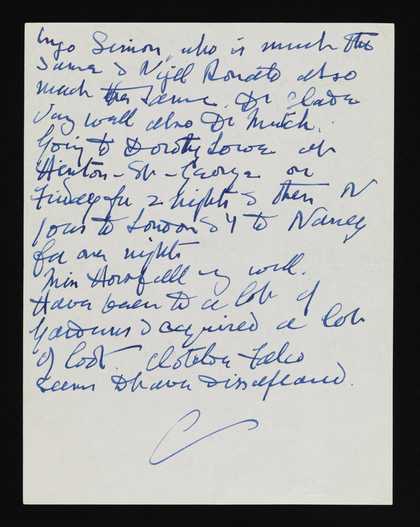 Ingo Simon, who is much the
same & Nigel Ronato also
much the same. Dr Slade
very well also Dr Mutch.
Going to Dorothy Lowe at
Hinton-St-George on
Friday for 2 nights & then N
goes to London & I to Nancy
for one night.
Miss Horsfall v. well.
Have been to a lot of
Gardens & acquired a lot
of loot.
seems to have disappeared.
C